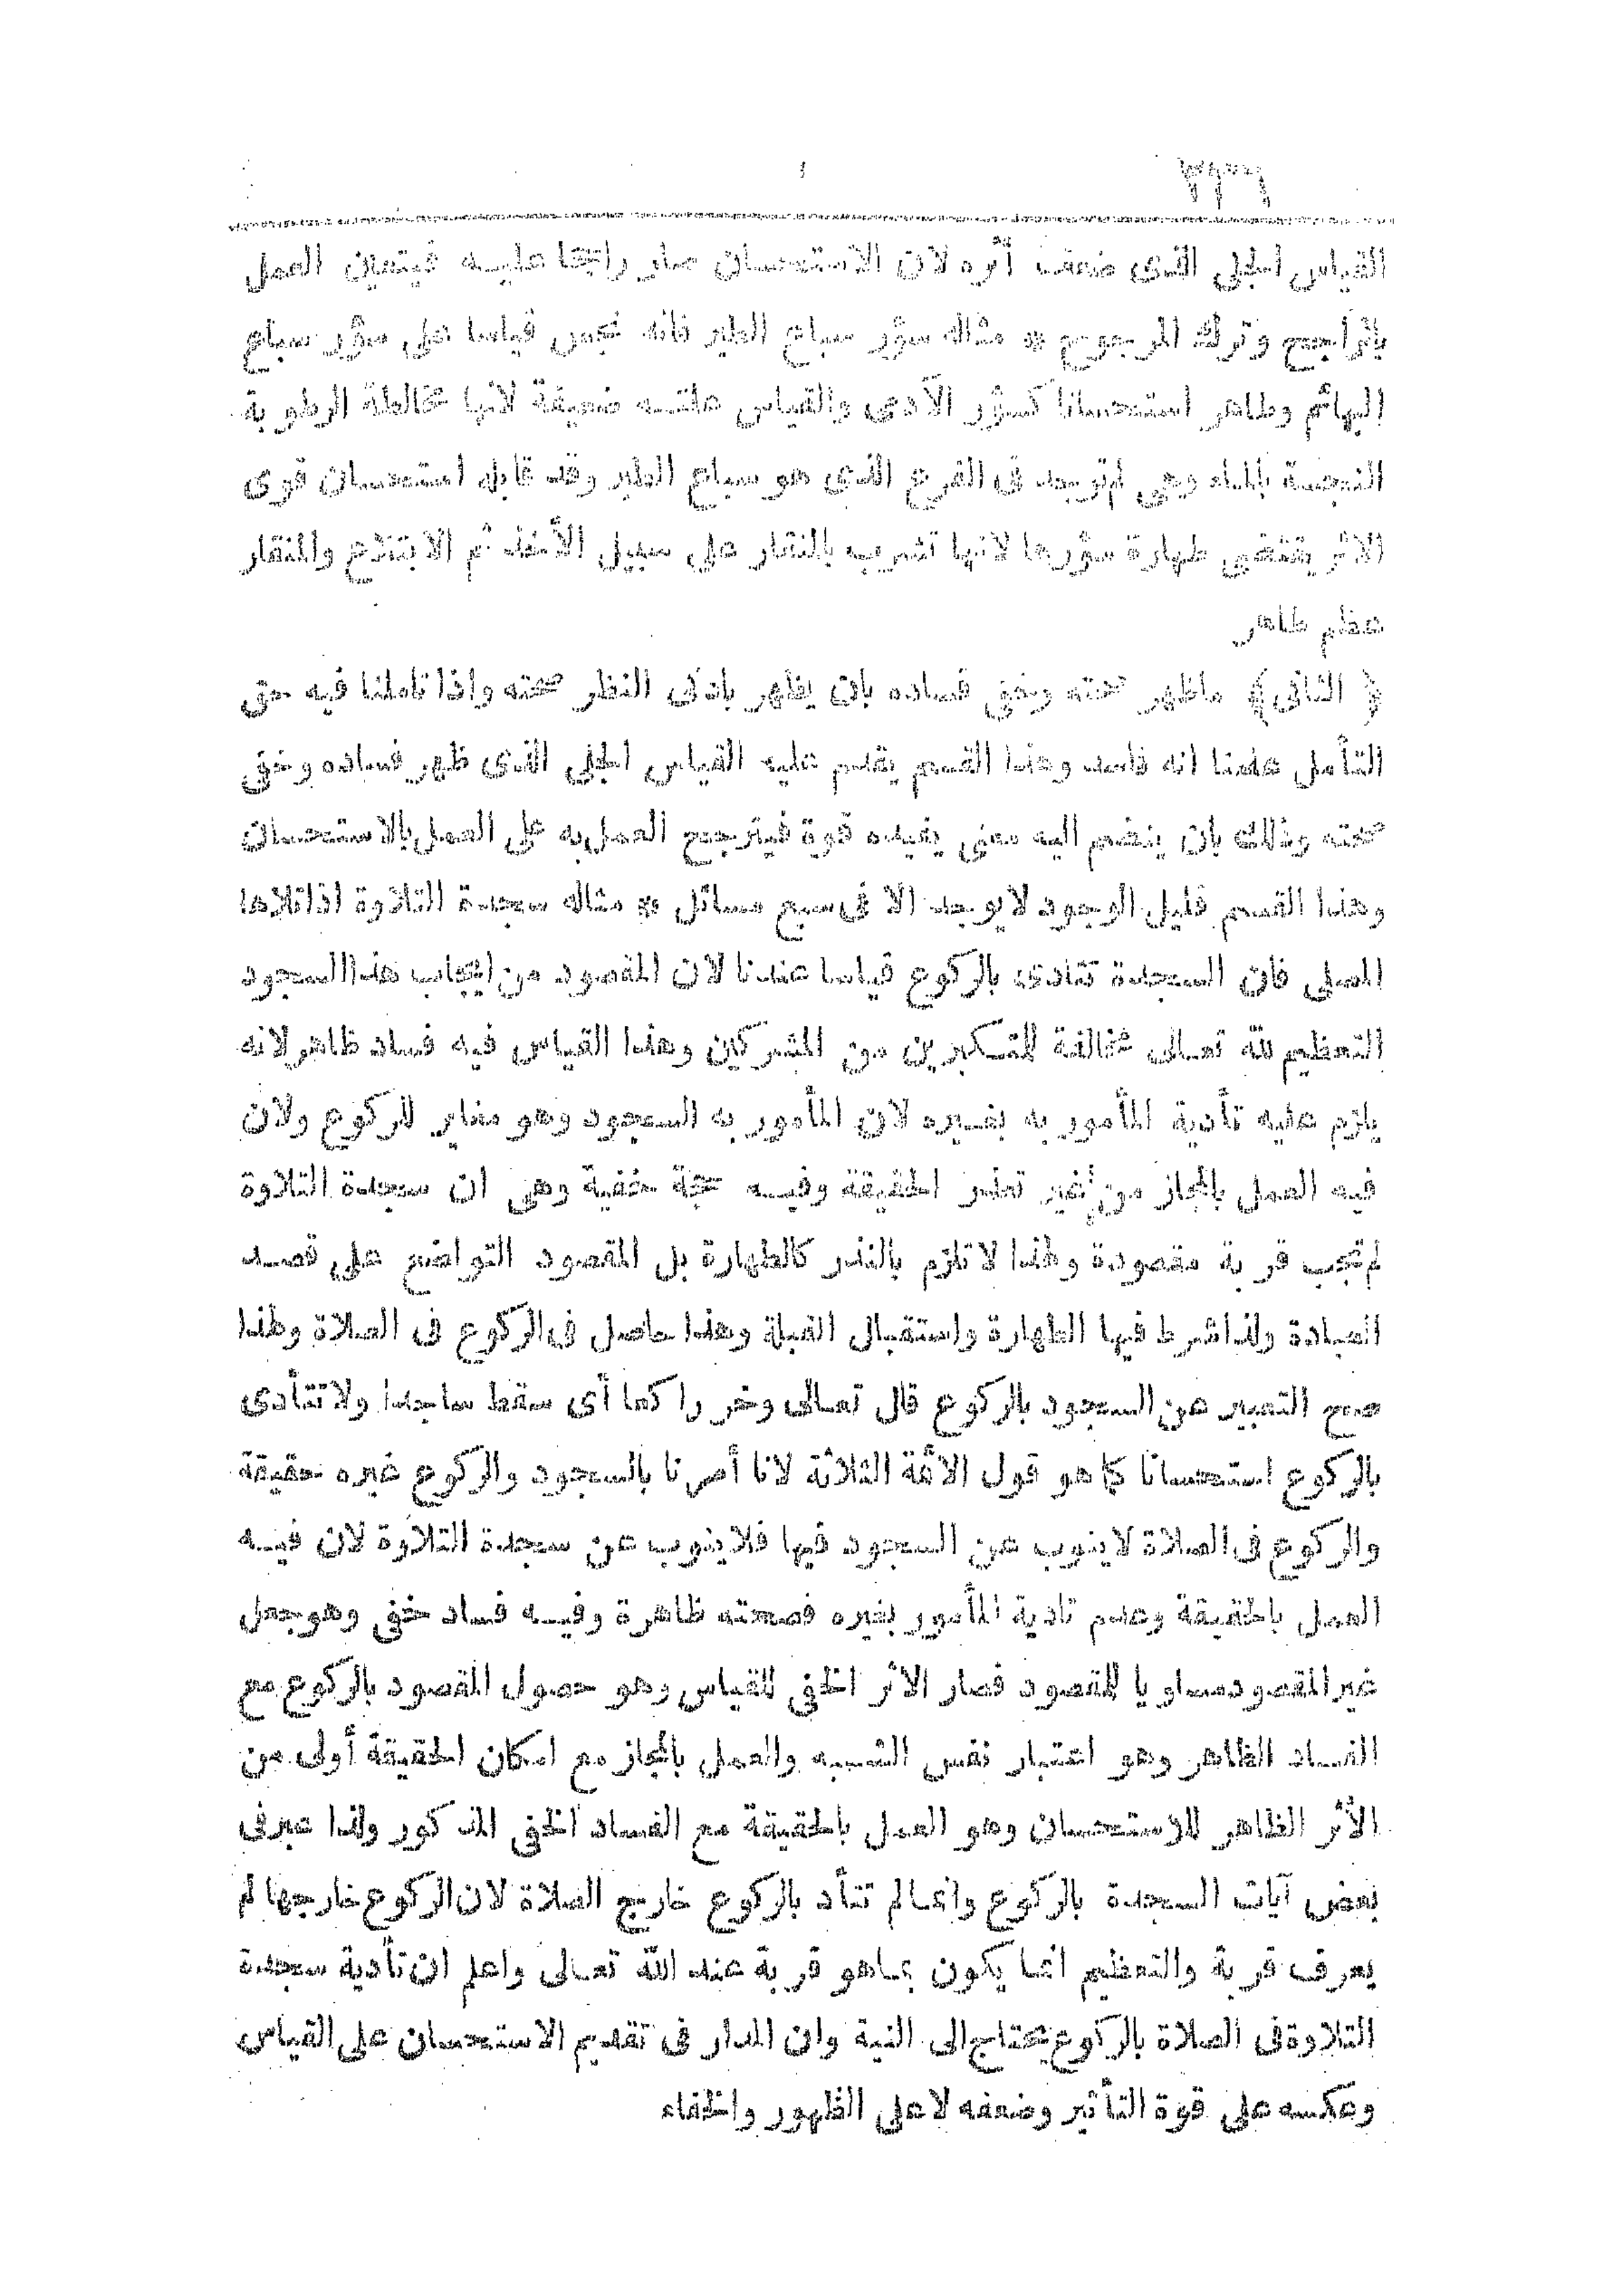 ٢٣٦
القياس الجلى الذى ضعف أثره لان الاستحسان صار راجحا عليه فيتعين العمل
بالراجح وترك المرجوح * مثاله سؤر سباع الطير فانه نجس قياسا على سؤر سباع
البهائم وطاهر استحسانا كسؤر الآدمى والقياس علته ضعيفة لانها مخالطة الرطوبة
النجسة بالماء وهى لم توجد فى الفرع الذى هو سباع الطير وقد قابله استحسان قوى
الاثر يقتضى طهارة سؤرها لانها تشرب بالمنقار على سبيل الأخذ ثم الابتلاع والمنقار
عظم طاهر
﴿ الثانى ﴾ ماظهر صحته وخفى فساده بان يظهر بادنى النظر صحته واذا تاملنا فيه حق
التأمل علمنا انه فاسد وهذا القسم يقدم عليه القياس الجلى الذى ظهر فساده وخفى
صحته وذلك بان ينضم اليه معنى يفيده قوة فيترجح العمل به على العمل بالاستحسان
وهذا القسم قليل الوجود لا يوجد الا فى سبع مسائل * مثاله سجدة التلاوة اذا تلاها
المصلى فان السجدة تتادى بالركوع قياسا عندنا لان المقصود من ايجاب هذا السجود
التعظيم لله تعالى مخالفة للمتكبرين من المشركين وهذا القياس فيه فساد ظاهر لانه
يلزم عليه تأدية المأمور به بغيره لان المأمور به السجود وهو مغاير للركوع ولان
فيه العمل بالمجاز من غير تعذر الحقيقة وفيه حجة خفية وهى ان سجدة التلاوة
لم تجب قربة مقصودة ولهذا لا تلزم بالنذر كالطهارة بل المقصود التواضع على قصد
العبادة ولذا شرط فيها الطهارة واستقبال القبلة وهذا حاصل فى الركوع فى الصلاة ولهذا
صح التعبير عن السجود بالركوع قال تعالى وخر راكعا أى سقط ساجدا ولا تتأدى
بالركوع استحسانا كما هو قول الائمة الثلاثة لانا أمرنا بالسجود والركوع غيره حقيقة
والركوع فى الصلاة لا ينوب عن السجود فيها فلا ينوب عن سجدة التلاوة لان فيه
العمل بالحقيقة وعدم تادية المأمور بغيره فصحته ظاهرة وفيه فساد خفى وهو جعل
غير المقصود مساويا للمقصود فصار الاثر الخفى للقياس وهو حصول المقصود بالركوع مع
الفساد الظاهر وهو اعتبار نفس الشبه والعمل بالمجاز مع امكان الحقيقة أولى من
الأثر الظاهر للاستحسان وهو العمل بالحقيقة مع الفساد الخفى المذكور ولذا عبر فى
بعض آيات السجدة بالركوع وانما لم تتأد بالركوع خارج الصلاة لان الركوع خارجها لم
يعرف قربة والتعظيم انما يكون بما هو قربة عند الله تعالى واعلم ان تأدية سجدة
التلاوة فى الصلاة بالركوع يحتاج الى النية وان المدار فى تقديم الاستحسان على القياس
وعكسه على قوة التأثير وضعفه لا على الظهور والخفاء